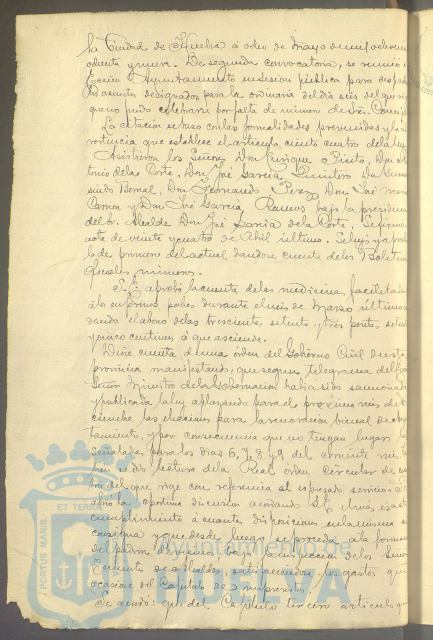 la Ciudad de Huelva a ocho de Mayo de mil ochocien
ochenta y nueve. De segunda convocatoria, se reunió e
Excmo Ayuntamiento en sesion pública para despa
los asuntos designados para la ordinaria del dia seis del que rije
que no pudo celebrarse por falta de número de Sres. Concej
La citación se hizo con las formalidades prevenidas y la a
vertencia que establece el artículo, ciento cuatro de la ley
Asistieron los Señores Don Enrique Prieto, Don
de la Corte, Don José García Quintero, Don Gume
sindo Bernal, Don Fernando Perez, Don José
y Don José García Ramos bajo la presidencia
del Sr. Alcalde Don José García de la Corte. Se
acta de veinte y cuatro de Abril último. Se leyó y aprobó
la de primero del actual dandose cuenta de los Boletin
Oficiales números.
S. E. aprobó la cuenta de las medicinas facilitada
a los enfermos pobres durante el mes de Marzo último
dando el abono de las trescientas setenta y tres peseta, seten
y cinco centimos a que asciende.
Dióse cuenta de una orden del Gobierno Civil de esta
provincia manifestando, que segun telegrama del
Señor Ministro de la Gobernacion habia sido sancionada
y publicada la ley aplazando para el próximo mes de Di
ciembre las elecciones para la renovacion bienal de ayun
tamiento, y por consecuencia que no tengan lugar la
señaladas para los dias 6, 7, 8 y 9 del corriente mes
bien se dió lectura de la Real orden circular de
tro del que rije con referencia al espresado servicio
abrió la oportuna discusion acordando S. E. unas
cumplimiento a cuanto disposiciones en la misma se
consigna y que desde luego se proceda a la forma
del padron de vecinos
de Alcaldes satisfaciendose los gastos que
ocasione del Capítulo de imprevistos.
Se acordó: que del Capítulo tercero artículo
PORTUS MARIS ET TERRAE
Ayuntamiento de
HUELVA